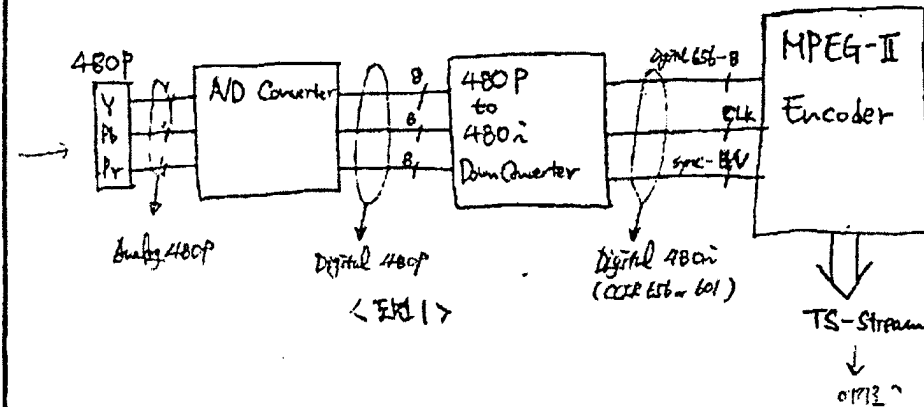 480P
Y
Pb
Pr
A/D Converter
8
8
8
480P
to
480i
Down Converter
Digital 656-8
CLK
Sync-H/V
MPEG-II
Encoder
Analog 480P
Digital 480P
Digital 480i
(CCIR 656 or 601)
<도면 1>
TS-Stream